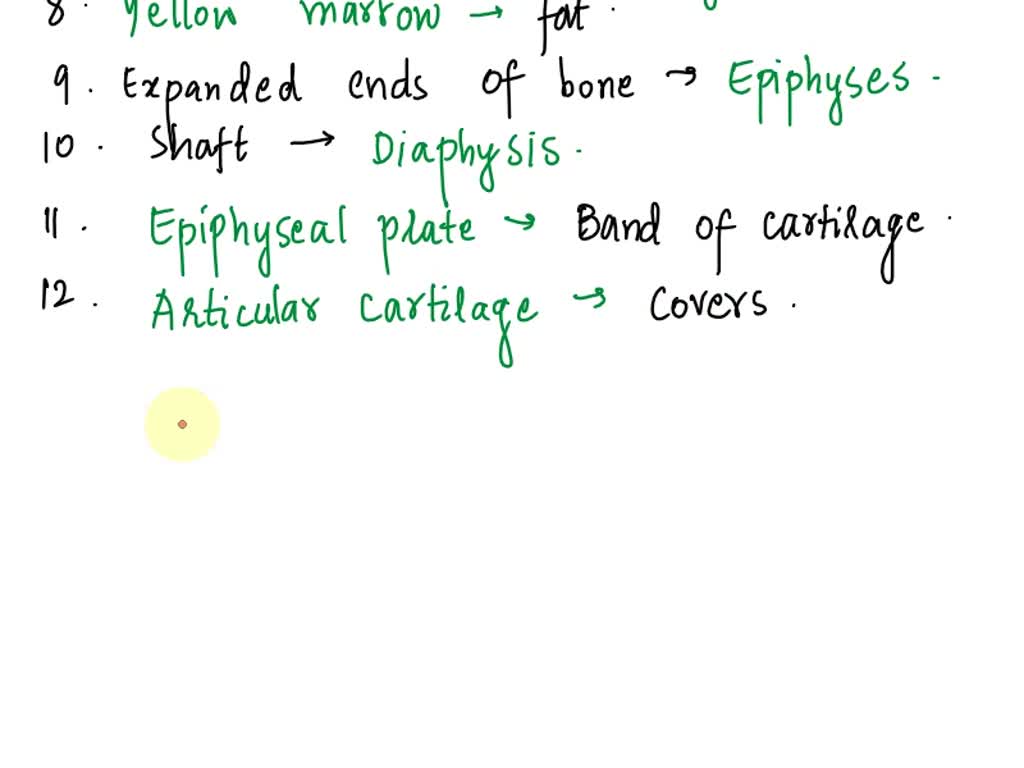 8. Yellow marrow → fat.
9. Expanded ends of bone → Epiphyses.
10. Shaft → Diaphysis.
11. Epiphyseal plate → Band of cartilage.
12. Articular cartilage → Covers.